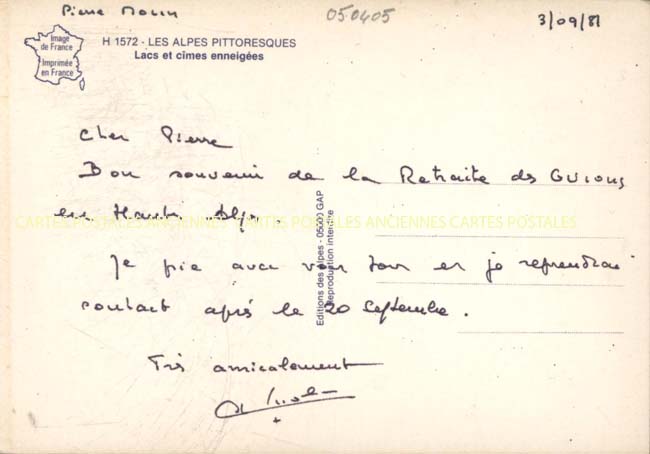 Pierre Morin
050405
3/09/81
Image
de France
Imprimée
en France
H 1572 - LES ALPES PITTORESQUES
Lacs et cîmes enneigées
Cher Pierre
Bon souvenir de la Retraite des Guions
en Hautes Alpes.
CARTES POSTALES ANCIENNES CARTES POSTALES ANCIENNES CARTES POSTALES
Je prie avec vous tous et je reprendrai
contact après le 20 Septembre.
Editions des alpes - 05000 GAP
Reproduction interdite
Très amicalement